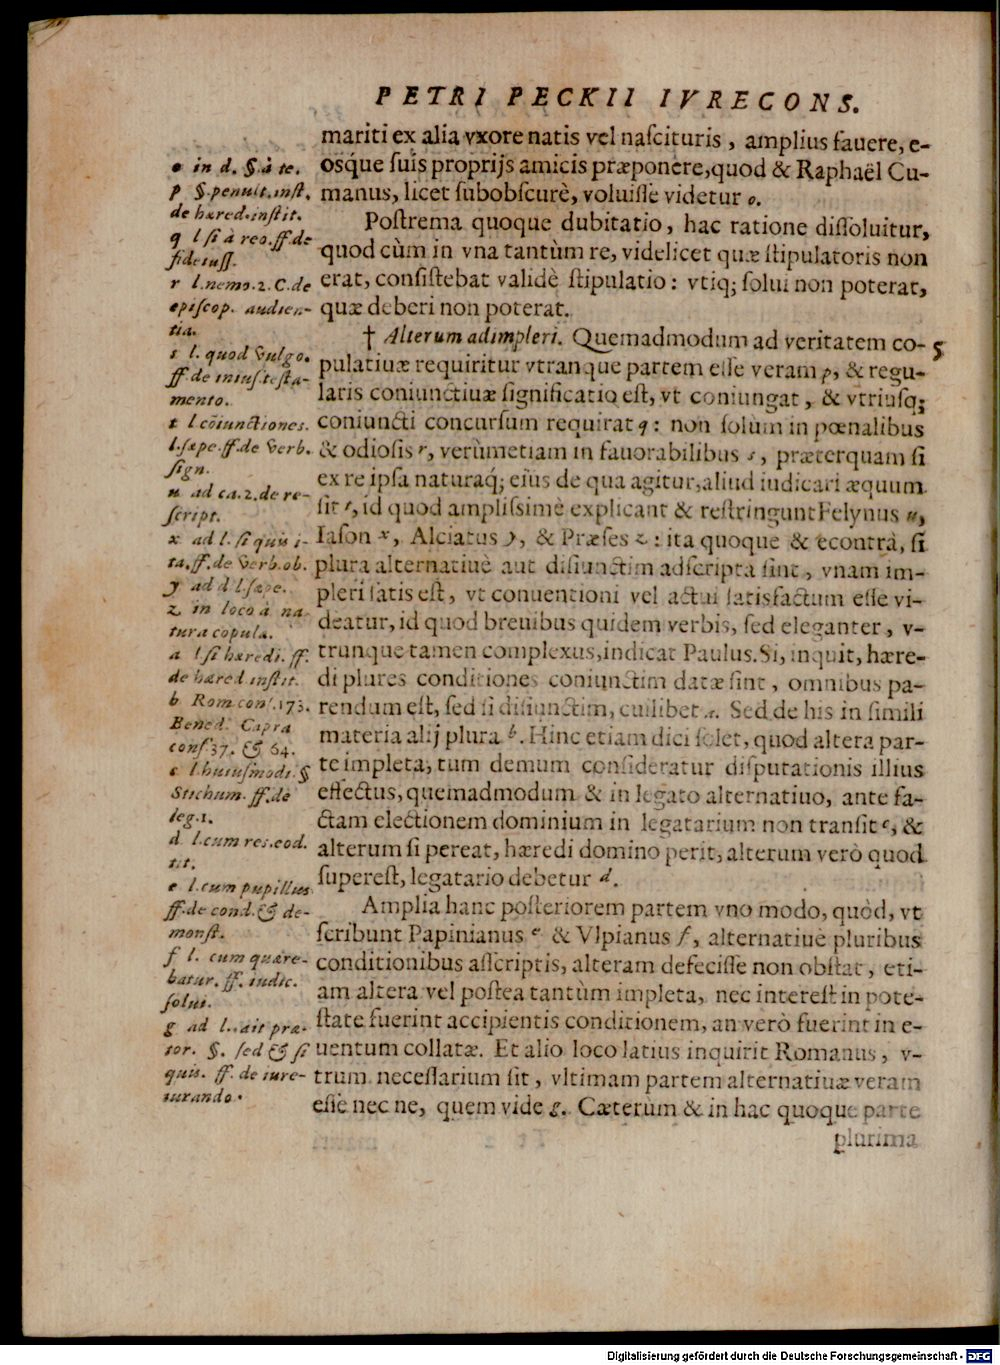 PETRI PECKII IVRECONS.
mariti ex alia vxore natis vel naſcituris, amplius fauere, e-
oſque ſuis proprijs amicis præponere, quod & Raphaël Cu-
manus, licet ſubobſcurè, voluiſſe videtur o.
Poſtrema quoque dubitatio, hac ratione diſſoluitur,
quod cùm in vna tantùm re, videlicet quæ ſtipulatoris non
erat, conſiſtebat validè ſtipulatio: vtiq; ſolui non poterat,
quæ deberi non poterat.
† Alterum adimpleri. Quemadmodum ad veritatem co- 5
pulatiuæ requiritur vtranque partem eſſe veram p, & regu-
laris coniunctiuæ ſignificatio eſt, vt coniungat, & vtriuſq;
coniuncti concurſum requirat q: non ſolùm in pœnalibus
& odioſis r, verùmetiam in fauorabilibus s, præterquam ſi
ex re ipſa naturaq; eius de qua agitur, aliud iudicari æquum
ſit t, id quod ampliſsimè explicant & reſtringunt Felynus u,
Iaſon x, Alciatus y, & Præſes z: ita quoque & econtrà, ſi
plura alternatiuè aut diſiunctim adſcripta ſint, vnam im-
pleri ſatis eſt, vt conuentioni vel actui ſatisfactum eſſe vi-
deatur, id quod breuibus quidem verbis, ſed eleganter, v-
trunque tamen complexus, indicat Paulus. Si, inquit, hære-
di plures conditiones coniunctim datæ ſint, omnibus pa-
rendum eſt, ſed ſi diſiunctim, cuilibet a. Sed de his in ſimili
materia alij plura b. Hinc etiam dici ſolet, quod altera par-
te impleta, tum demum conſideratur diſputationis illius
effectus, quemadmodum & in legato alternatiuo, ante fa-
ctam electionem dominium in legatarium non tranſit c, &
alterum ſi pereat, hæredi domino perit, alterum verò quod
ſupereſt, legatario debetur d.
Amplia hanc poſteriorem partem vno modo, quòd, vt
ſcribunt Papinianus e & Vlpianus f, alternatiuè pluribus
conditionibus aſſcriptis, alteram defeciſſe non obſtat, eti-
am altera vel poſtea tantùm impleta, nec intereſt in pote-
ſtate fuerint accipientis conditionem, an verò fuerint in e-
uentum collatæ. Et alio loco latius inquirit Romanus, v-
trum neceſſarium ſit, vltimam partem alternatiuæ veram
eſſe nec ne, quem vide g. Cæterùm & in hac quoque parte
plurima
o in d. §. à te.
p §. penult. inſt.
de hæred. inſtit.
q l ſi à reo. ff. de
fideiuſſ.
r l. nemo. 2. C. de
epiſcop. audien-
tia.
s l. quod vulgo.
ff. de iniuſ. teſta-
mento.
t l. cōiunctiones.
l. ſæpe. ff. de verb.
ſign.
u ad ca. 2. de re-
ſcript.
x ad l. ſi quis i-
ta. ff. de verb. ob.
y ad d l. ſæpe.
z in loco à na-
tura copula.
a l ſi hæredi. ff.
de hæred inſtit.
b Rom. conſ. 173.
Bened. Capra
conſ. 37. & 64.
c l. huiuſmodi. §
Stichum. ff. de
leg. 1.
d l. cum res. eod.
tit.
e l. cum pupillus
ff. de cond. & de-
monſt.
f l. cum quære-
batur. ff. iudic.
ſolui.
g ad l. ait præ-
tor. §. ſed & ſi
quis. ff. de iure-
iurando.
Digitalisierung gefördert durch die Deutsche Forschungsgemeinschaft - DFG